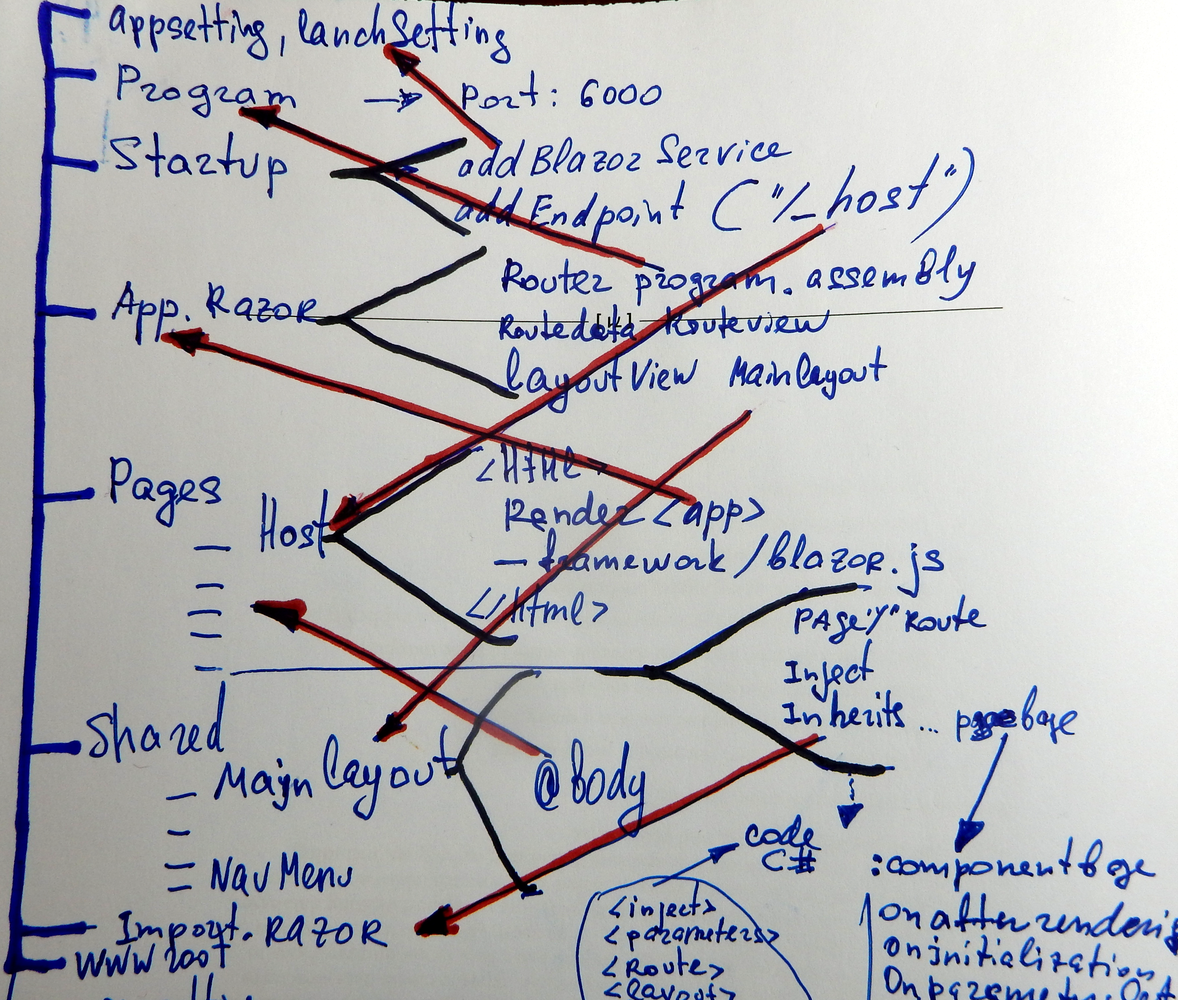 appsetting, lanchSetting
Program → Port: 6000
Startup
add Blazor Service
add Endpoint ("/_host")
App. RAZOR
Router program. assembly
Routedata Routeview
layoutView Mainlayout
Pages
Host
<HTML>
Render <app>
– framework/blazor.js
</Html>
PAge"/" Route
Inject
Inherits ... pagebase
Shared
Main layout
@Body
code
C#
Nav Menu
:componentbase
Import. RAZOR
<inject>
<parameters>
<Route>
<layout>
on after rendering
on initialization
www root